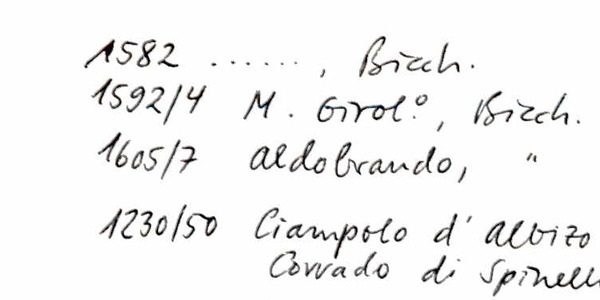 1582 ......, Bicch.
1592/4 M. Girol.º, Bicch.
1605/7 Aldobrando, "
1230/50 Ciampolo d' Albizo
Corrado di Spinelli